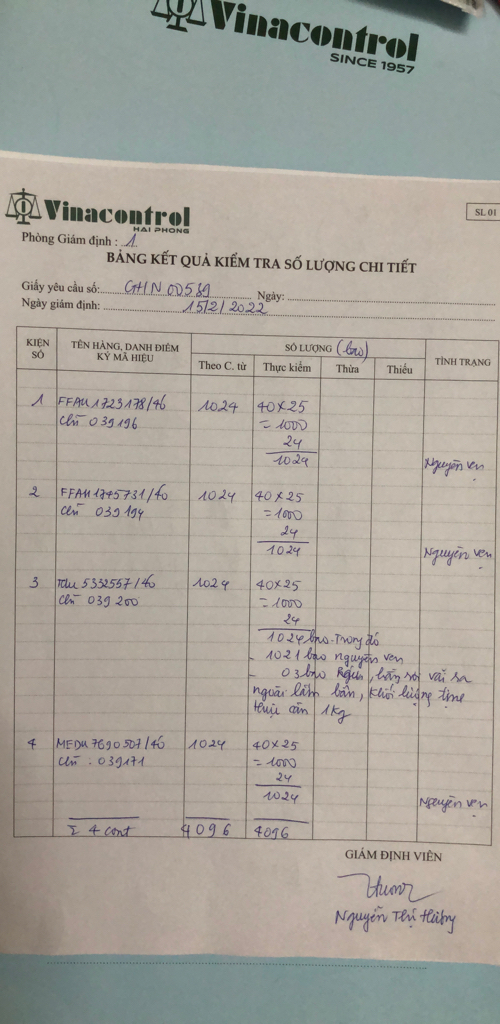 Vinacontrol
SINCE 1957
Vinacontrol
HAI PHONG
SL 01
Phòng Giám định : 1
BẢNG KẾT QUẢ KIỂM TRA SỐ LƯỢNG CHI TIẾT
Giấy yêu cầu số: Ngày:
Ngày giám định: 15/2/2022
KIỆN SỐ TÊN HÀNG, DANH ĐIỂM KÝ MÃ HIỆU SỐ LƯỢNG (bao) TÌNH TRẠNG
Theo C. từ Thực kiểm Thừa Thiếu
1 FFAU 1723178/40 1024 40x25
chì 039196 = 1000
24
1024 Nguyên vẹn
2 FFAU 1745731/40 1024 40x25
chì 039194 = 1000
24
1024 Nguyên vẹn
3 5332557/40 1024 40x25
chì 039200 = 1000
24
1024 bao. Trong đó
- 1021 bao nguyên vẹn
- 03 bao
ngoài lấm bẩn, khối lượng
thực cân 1kg
4 MEDU 7690507/40 1024 40x25
chì : 039171 = 1000
24
1024 Nguyên vẹn
Σ 4 cont 4096 4096
GIÁM ĐỊNH VIÊN
Nguyễn Thị